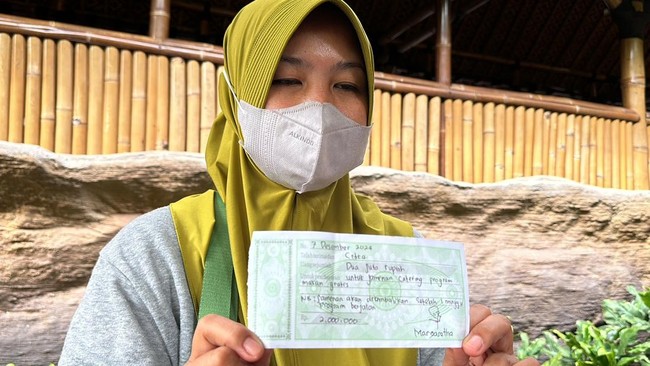 AIKINDO
No. 7 Desember 2024
Citra
Dua Juta rupiah
untuk jaminan Catering program
makan gratis
NB: Jaminan akan dikembalikan Setelah 1 minggu
program berjalan
Rp 2.000.000
Margaretha